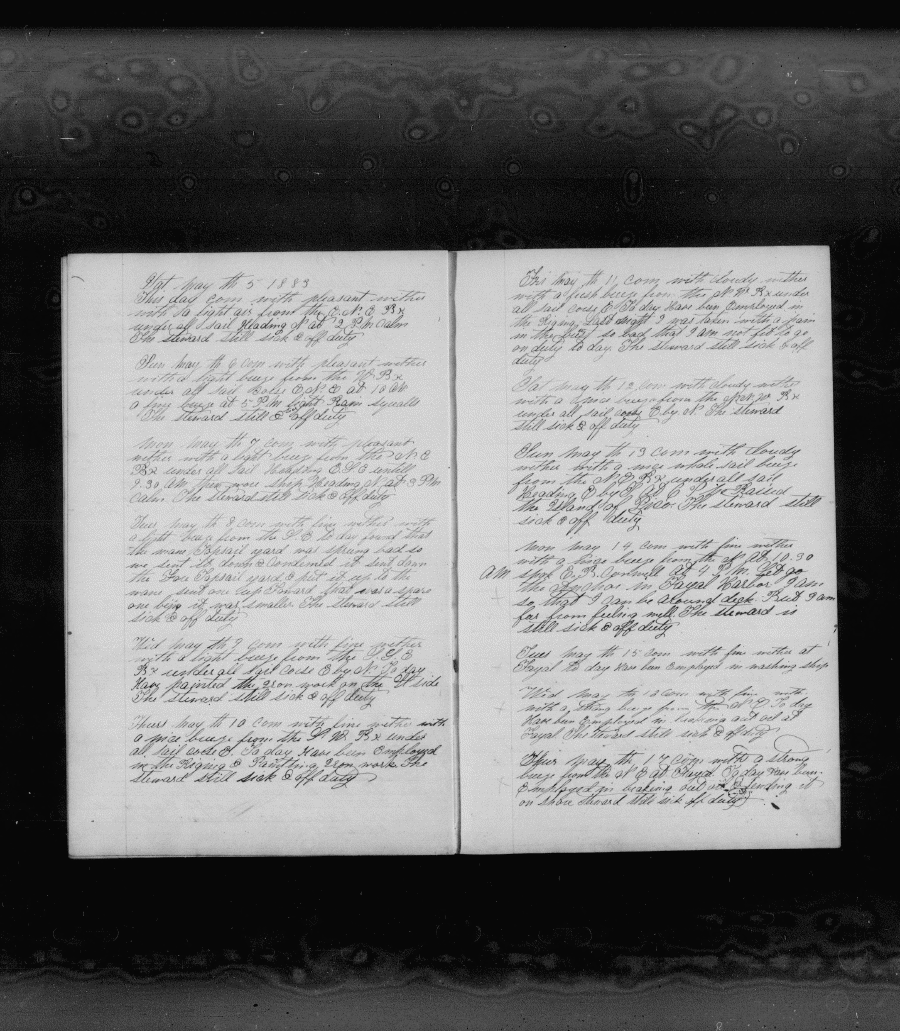 Sat May th 5 1883
This day com with pleasant wither
with a light air from the E N E Bx
under all sail Heading N at 12 P.M. Calm
The steward still sick & off duty
Sun May th 6 com with pleasant wither
with a light breeze from the W Bx
under all sail Corse E N E at 10 AM
a fine breeze at 5 P.M light Rain squalls
The steward still & off duty
Mon May th 7 com with pleasant
wither with a light breeze from the N E
Bx under all sail Heading E S E untill
9.30 AM then wore ship Heading N at 3 P.M
Calm The steward still sick & off duty
Tues May th 8 com with fine wither with
a light breeze from the S E to day found that
the main Topsail yard was sprung bad so
we sent it down & condemed it sent down
the Fore Topsail yard & put it up to the
main sent on up Foward that was a spare
one being it was smaller The steward still
sick & off duty
Wed May th 9 com with fine wither
with a light breeze from the S S E
Bx under all sail Corse E by N To day
Have painted the Iron work on the St side
The steward still sick & off duty
Thurs May th 10 com with fine wither with
a nice breeze from the S. W. Bx under
all sail corse E. To day Have been Employed
in the Riging & Painting Iron work The
steward still sick & off duty
Fri May th 11 com with cloudy wither
with a fresh breeze from the N W Bx under
all sail Corse E To day Have been Employed in
the Riging. Last night I was taken with a pain
in the so bad that I am not fit to go
on duty to day. The steward still sick & off
duty
Sat May th 12 com with cloudy wither
with a nice breeze from the N W Bx
under all sail corse E by N The steward
still sick & off duty
Sun May th 13 com with cloudy
wither with a nice whole sail breeze
from the N E Bx under all sail
Heading E by S Raised
the Island of Pico. The steward still
sick & off duty
Mon May 14 com with fine wither
with a nice breeze from the N At 10.30
AM spoke At 4 P.M. Let go
the anchor in Fayal Harbor I am
so that I can be around deck But I am
far from feeling well The steward is
still sick & off duty
Tues May th 15 com with fine wither at
Fayal To day Have been Employed in washing ship
Wed May th 16 com with fine wither
with a strong breeze from the N E To day
Have been Employed in breaking out oil at
Fayal The steward still sick & off duty
Thur May th 17 com with a strong
breeze from the N E at Fayal To day Have been
Employed in breaking out oil & sending it
on shore steward still sick off duty